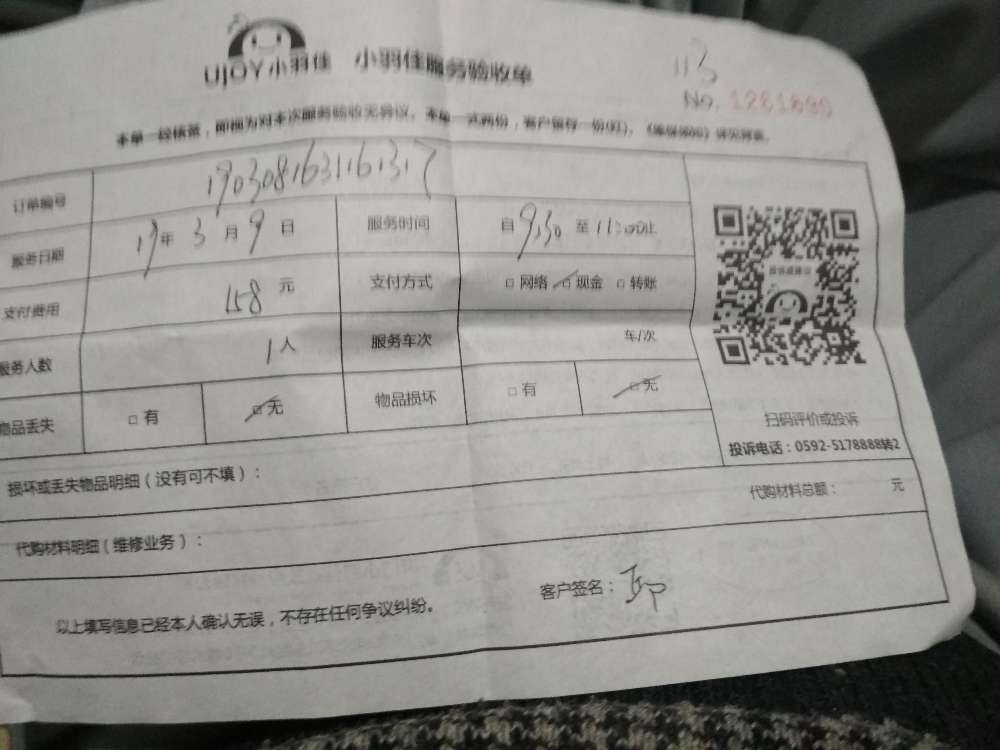 UJOY小羽佳 小羽佳服务验收单
113
No. 1261899
本单一经核签，即视为对本次服务验收无异议。本单一式两份，客户留存一份(红)。
订单编号 1903081631161317
服务日期 19年3月9日 服务时间 自9:30至11:00止
支付费用 158元 支付方式 □网络 □现金 □转账
服务人数 1人 服务车次 车/次
物品丢失 □有 □无 物品损坏 □有 □无
投诉或建议
扫码评价或投诉
投诉电话：0592-5178888转2
损坏或丢失物品明细（没有可不填）：
代购材料明细（维修业务）： 代购材料总额： 元
以上填写信息已经本人确认无误，不存在任何争议纠纷。 客户签名：